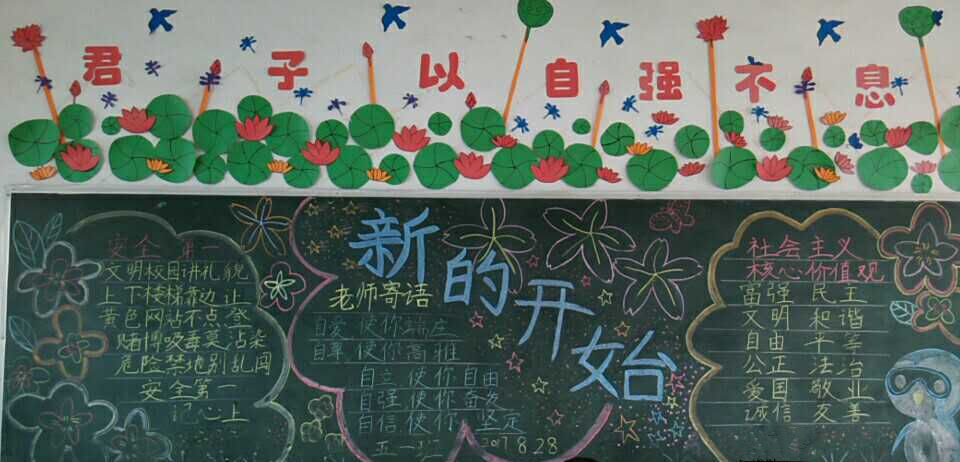 君子以自强不息
新的开始
安全第一
文明校园讲礼貌
上下楼梯靠边上
黄色网站不点登
赌博吸毒莫沾染
危险禁地别乱闯
安全第一
记心上
老师寄语
自爱 使你端庄
自尊 使你高雅
自立 使你自由
自强 使你奋发
自信 使你 坚定
五一班
2017.8.28
社会主义
核心价值观
富强 民主
文明 和谐
自由 平等
公正 法治
爱国 敬业
诚信 友善